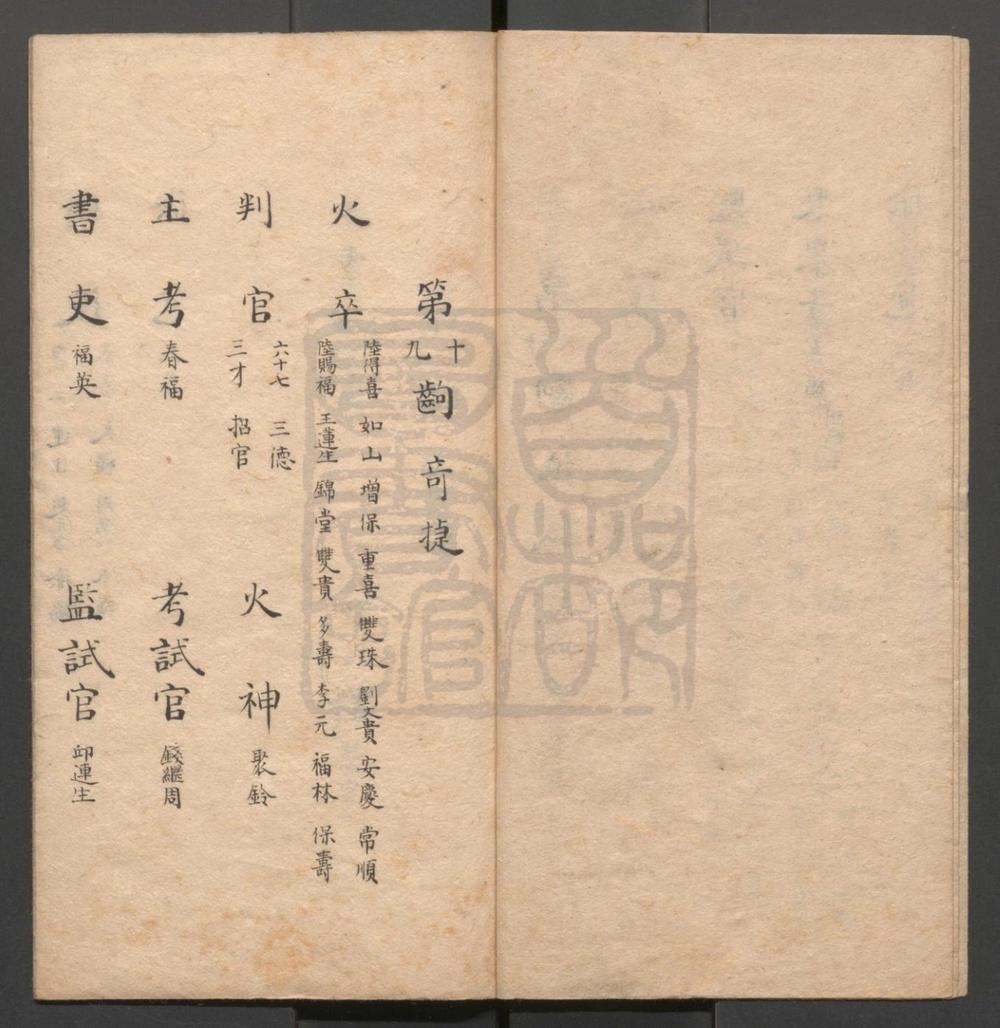 第十九齣 奇捷
火卒 陸得喜 如山 增保 重喜 雙珠 劉文貴 安慶 常順
陸賜福 王蓮生 錦堂 雙貴 多壽 李元 福林 保壽
判官 六十七 三德
三才 招官
火神 聚鈴
主考 春福 考試官 錢繼周
書吏 福英 監試官 邱連生